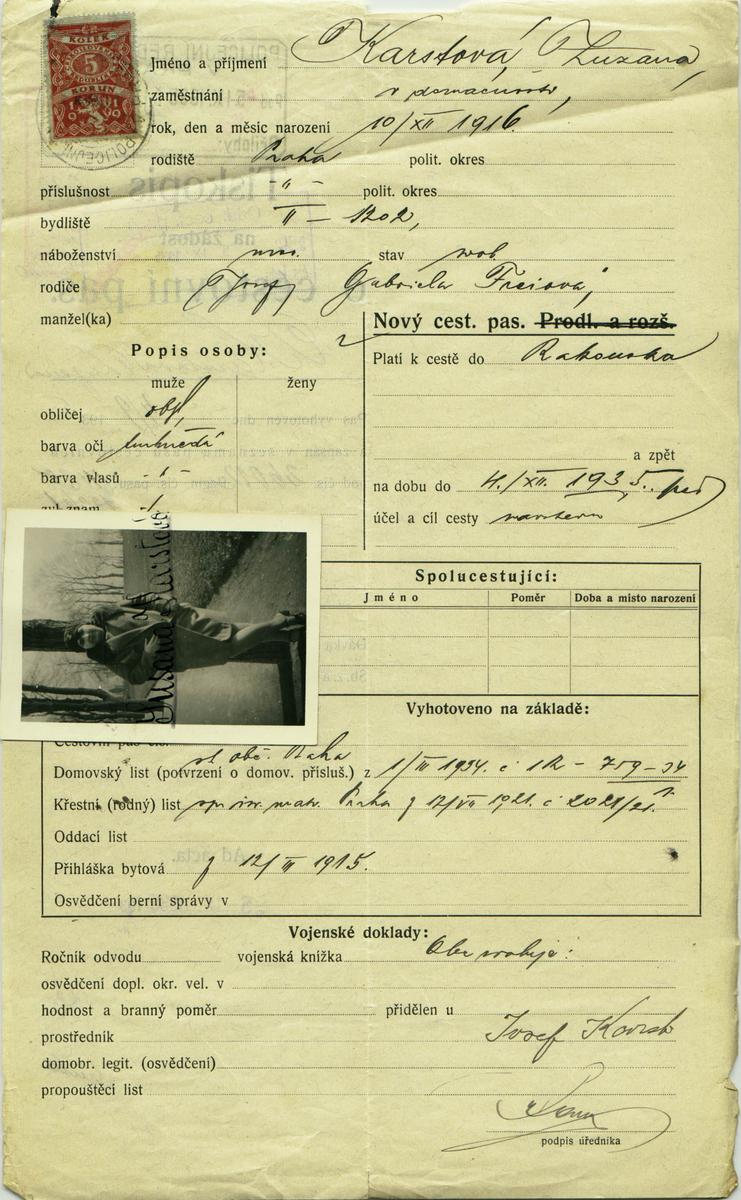 KOLEK
5
KORUN
Jméno a příjmení Karstová, Zuzana,
zaměstnání v domácnosti,
rok, den a měsíc narození 10/XII 1916.
rodiště Praha polit. okres
příslušnost -"- polit. okres
bydliště II – 1202,
náboženství stav svob.
rodiče Josef, Gabriela Freiová,
manžel(ka)
Nový cest. pas. Prodl. a rozš.
Platí k cestě do Rakouska
a zpět
na dobu do 4./XII. 1935.
účel a cíl cesty
Popis osoby:
muže ženy
obličej obl,
barva očí tmhnědá
barva vlasů -"-
zvl. znam.
Susana Karstová
Spolucestující:
Jméno Poměr Doba a místo narození
Vyhotoveno na základě:
Cestovní pas čís.
Domovský list (potvrzení o domov. přísluš.) z ob. Praha 1/III 1934. č 12 – 759 – 34
Křestní (rodný) list Praha z 12/VII 1921. č 2021/21.
Oddací list
Přihláška bytová z 12/III 1915.
Osvědčení berní správy v
Vojenské doklady:
Ročník odvodu vojenská knížka
osvědčení dopl. okr. vel. v
hodnost a branný poměr přidělen u
prostředník Josef Karst
domobr. legit. (osvědčení)
propouštěcí list
podpis úředníka